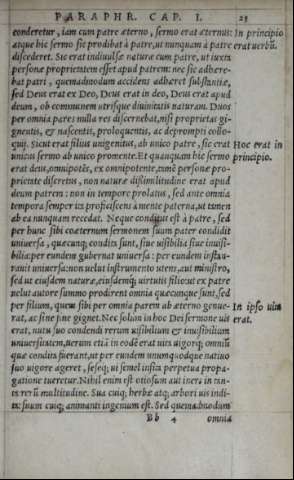 PARAPHR. CAP. I. 25
conderetur, iam cum patre æterno, sermo erat æternus: In principio
atque hic sermo sic prodibat à patre, ut nunquam à patre erat uerbũ.
discederet. Sic erat indiuulsæ naturæ cum patre, ut iuxta
personæ proprietatem esset apud patrem: nec sic adhære-
bat patri, quemadmodum accidens adhæret substantiæ,
sed Deus erat ex Deo, Deus erat in deo, Deus erat apud
deum, ob communem utrisque diuinitatis naturam. Duos
per omnia pares nulla res discernebat, nisi proprietas gi-
gnentis, & nascentis, proloquentis, ac deprompti collo-
quij. Sicut erat filius unigenitus, ab unico patre, sic erat Hoc erat in
unicus sermo ab unico promente. Et quanquam hic sermo principio.
erat deus, omnipotẽs, ex omnipotente, tamẽ personæ pro-
prietate discretus, non naturæ dissimilitudine erat apud
deum patrem: non in tempore probatus, sed ante omnia
tempora semper ita proficiscens à mente paterna, ut tamen
ab ea nunquam recedat. Neque conditus est à patre, sed
per hunc sibi coæternum sermonem suum pater condidit
uniuersa, quæcunq; condita sunt, siue uisibilia siue inuisi-
bilia: per eundem gubernat uniuersa: per eundem instau-
rauit uniuersa: non uelut instrumento utens, aut ministro,
sed ut eiusdem naturæ, eiusdemq; uirtutis filio: ut ex patre
uelut autore summo prodirent omnia quæcunque sunt, sed
per filium, quem sibi per omnia parem ab æterno genue- In ipso uita
rat, ac sine fine gignet. Nec solum in hoc Dei sermone uis erat.
erat, nutu suo condendi rerum uisibilium & inuisibilium
uniuersitatem, uerum etiã in eodẽ erat uita uigorq; omniũ
quæ condita fuerant, ut per eundem unumquodque natiuo
suo uigore ageret, seseq; ui semel insita perpetua propa-
gatione tueretur. Nihil enim est otiosum aut iners in tan-
ta rerũ multitudine. Sua cuiq; herbæ atq; arbori uis indi-
ta: suum cuiq; animanti ingenium est. Sed quemadmodum
Bb 4 omnia